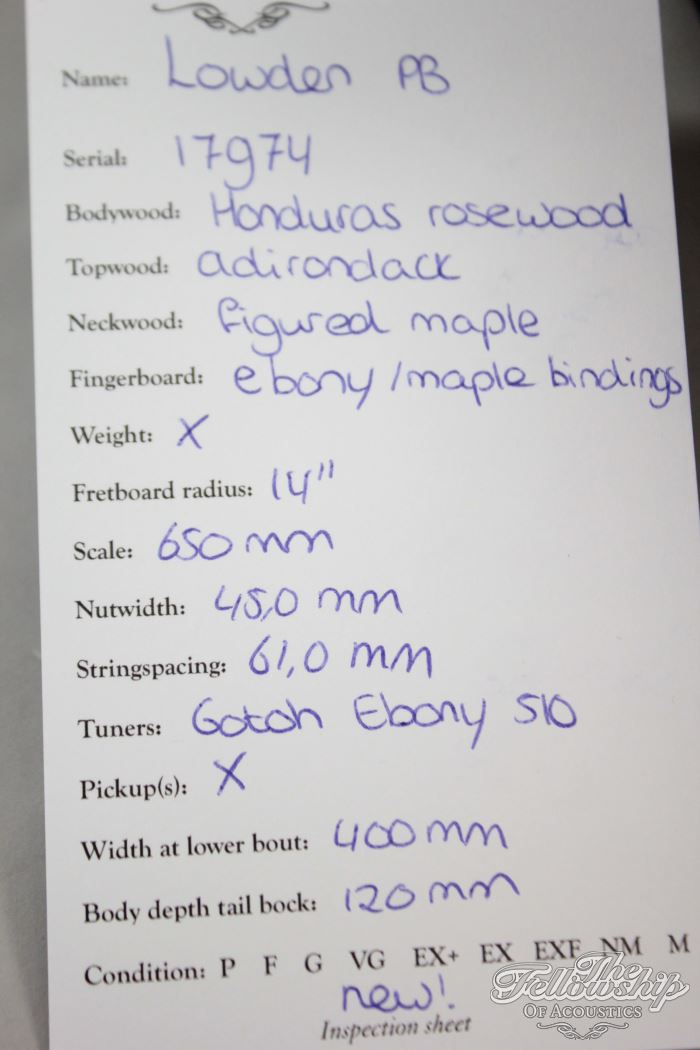 Name: Lowden PB
Serial: 17974
Bodywood: Honduras rosewood
Topwood: adirondack
Neckwood: figured maple
Fingerboard: ebony/maple bindings
Weight: X
Fretboard radius: 14"
Scale: 650 mm
Nutwidth: 45,0 mm
Stringspacing: 61,0 mm
Tuners: Gotoh Ebony 510
Pickup(s): X
Width at lower bout: 400 mm
Body depth tail bock: 120 mm
Condition: P F G VG EX+ EX EXF NM M
new!
Inspection sheet
The
Fellowship
OF ACOUSTICS